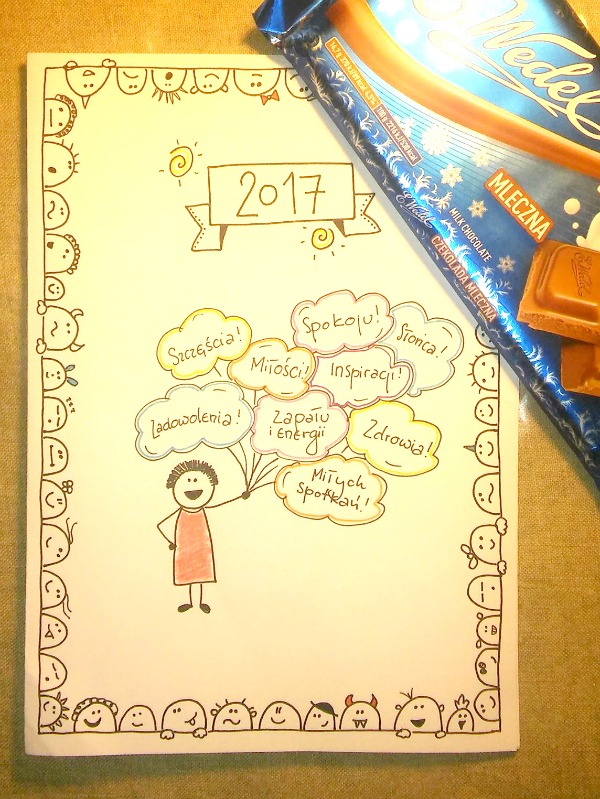 2017
Szczęścia!
Spokoju!
Słońca!
Miłości!
Inspiracji!
Zadowolenia!
Zapału
i energii
Zdrowia!
Miłych
spotkań!
Wedel
E. Wedel
MLECZNA
MILK CHOCOLATE
CZEKOLADA MLECZNA